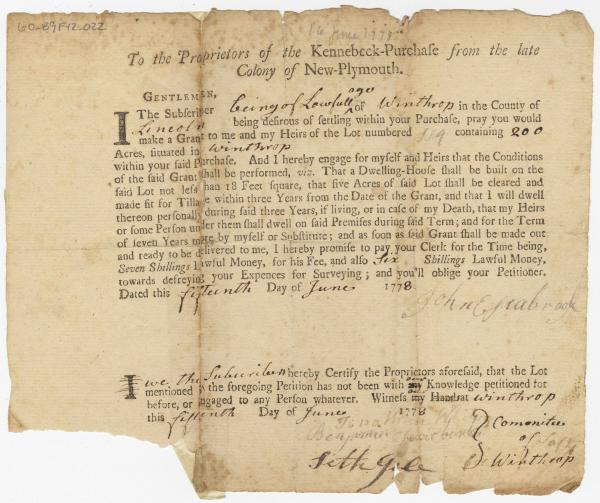 60-89F12.022
June 1778
To the Proprietors of the Kennebeck-Purchaſe from the late
Colony of New-Plymouth.
GENTLEMEN,
I The Subſcriber being of Lawfull age of Winthrop in the County of
Lincoln being deſirous of ſettling within your Purchaſe, pray you would
make a Grant to me and my Heirs of the Lot numbered 119 containing 200
Acres, ſituated in Winthrop
within your ſaid Purchaſe. And I hereby engage for myſelf and Heirs that the Conditions
of the ſaid Grant ſhall be performed, viz. That a Dwelling-Houſe ſhall be built on the
ſaid Lot not leſs than 18 Feet ſquare, that five Acres of ſaid Lot ſhall be cleared and
made fit for Tillage within three Years from the Date of the Grant, and that I will dwell
thereon perſonally during ſaid three Years, if living, or in caſe of my Death, that my Heirs
or ſome Perſon under them ſhall dwell on ſaid Premiſes during ſaid Term; and for the Term
of ſeven Years more by myſelf or Subſtitute; and as ſoon as ſaid Grant ſhall be made out
and ready to be delivered to me, I hereby promiſe to pay your Clerk for the Time being,
Seven Shillings Lawful Money, for his Fee, and alſo Six Shillings Lawful Money,
towards defreying your Expences for Surveying; and you'll oblige your Petitioner.
Dated this fifteenth Day of June 1778
John
I we the Subscriber hereby Certify the Proprietors aforeſaid, that the Lot
mentioned in the foregoing Petition has not been with our my Knowledge petitioned for
before, or engaged to any Perſon whatever. Witneſs my Hand at Winthrop
this fifteenth Day of June 1778
Benjamin
Comonitee
of
Winthrop